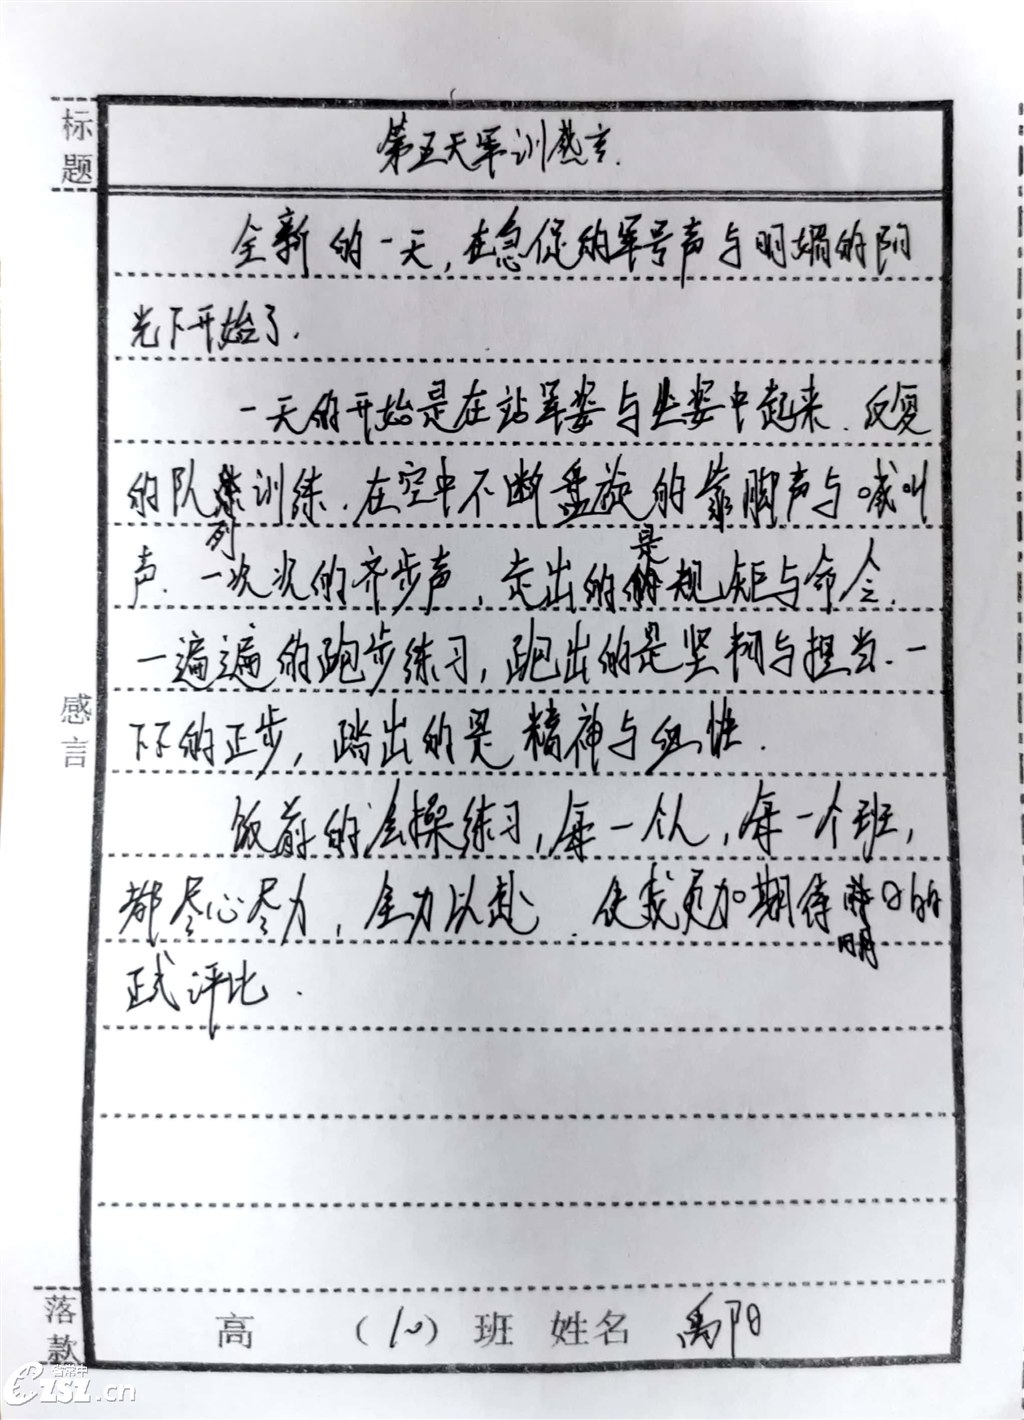 标题
第五天军训感言.
全新的一天,在急促的军号声与明媚的阳
光下开始了.
一天的开始是在站军姿与坐姿中起来.反复
的队列训练.在空中不断盘旋的靠脚声与喊叫
声.一次次的齐步声,走出的是规矩与命令.
一遍遍的跑步练习,跑出的是坚韧与担当.一
下下的正步,踏出的是精神与血性.
感言
饭前的会操练习,每一个人,每一个班,
都尽心尽力,全力以赴.使我更加期待明日的
正式评比.
落款
高 (10)班 姓名 禹阳
省常中
CZSZ.cn